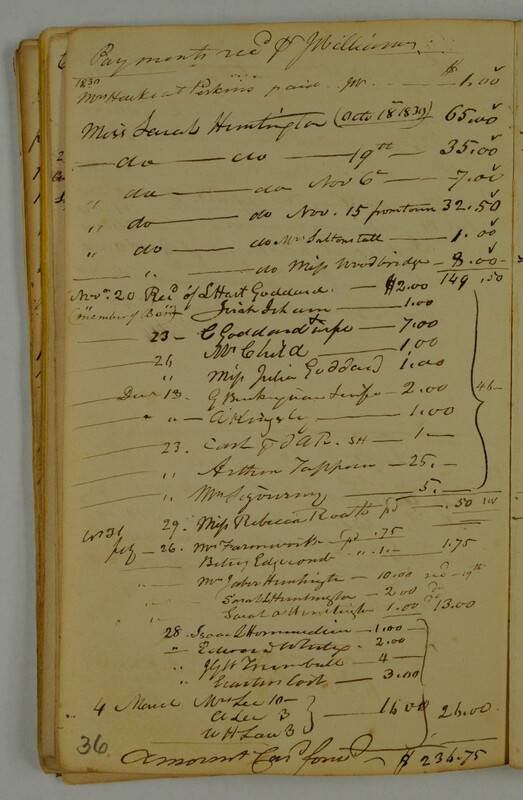 Payments rec'd of Williams
1830
Mrs Hawkes at Perkins paid $ 1.00
Miss Sarah Huntington (Octo 18 1830) 65.00
— do — do — 19th — 35.00
" do — do Nov 6 — 7.00
" do — do Nov. 15 from town 32.50
" do — do Mrs Saltonstall — 1.00
" — do Miss Woodbridge — 8.00
Novr. 20 Rec'd of L Hart Goddard — $2.00 149.50
(member of Jirah Isham — 1.00
23 — C Goddard & wife — 7.00
26 Mr Child — 1.00
" Miss Julia Goddard 1.00
Dec 13. G Buckingham & wife — 2.00 46—
" — A Kingsly — 1.00
23. Cash SH — 1—
" Arthur Tappan — 25.—
" Mrs Sigourney 5.
1831 29. Miss Rebecca Routh pd — .50
feby — 26. Mrs Farnworth pd .75
Betsey Edgcomb " 1.— 1.75
" Mr Jabez Huntington — 10.00 rec'd 19th
" Sarah L Huntington — 2.00 do
" Sarah a Huntington 1.00 do 13.00
28. Isaac Lhommedieu — 1.00
" Edward Whiting 2.00
" J G W Trumbull — 4—
" Erastus Coit — 3.00
4 March Mrs Lee 10—
C Lee 3 — 16.00 26.00
W H Law 3
36. Amount Car'd for'd — $ 236.75